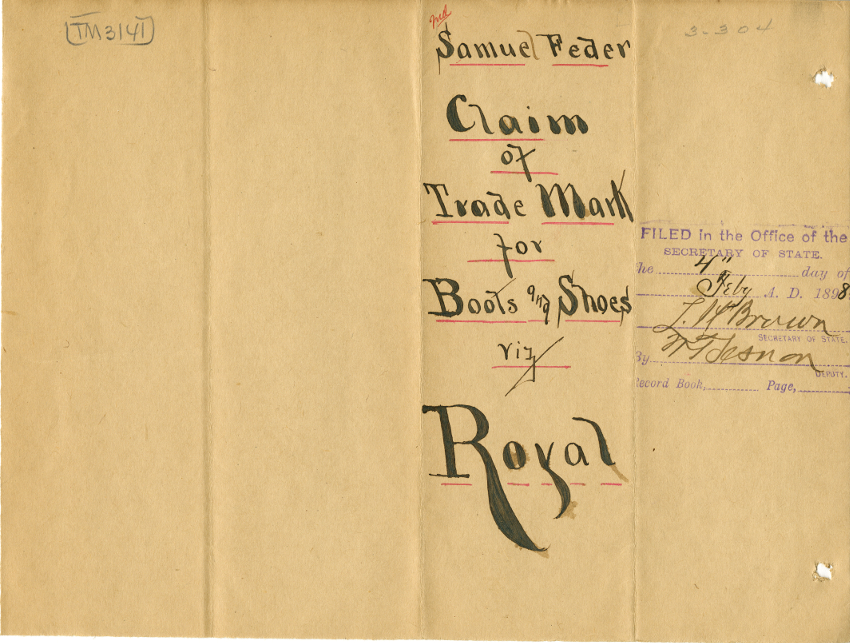 TM3141
Samuel Feder
Claim
of
Trade Mark
for
Boots and Shoes
viz
Royal
3-304
FILED in the Office of the
SECRETARY OF STATE.
the 4" day of
Feby A. D. 1898
L. H. Brown
SECRETARY OF STATE.
By
DEPUTY.
Record Book, Page,